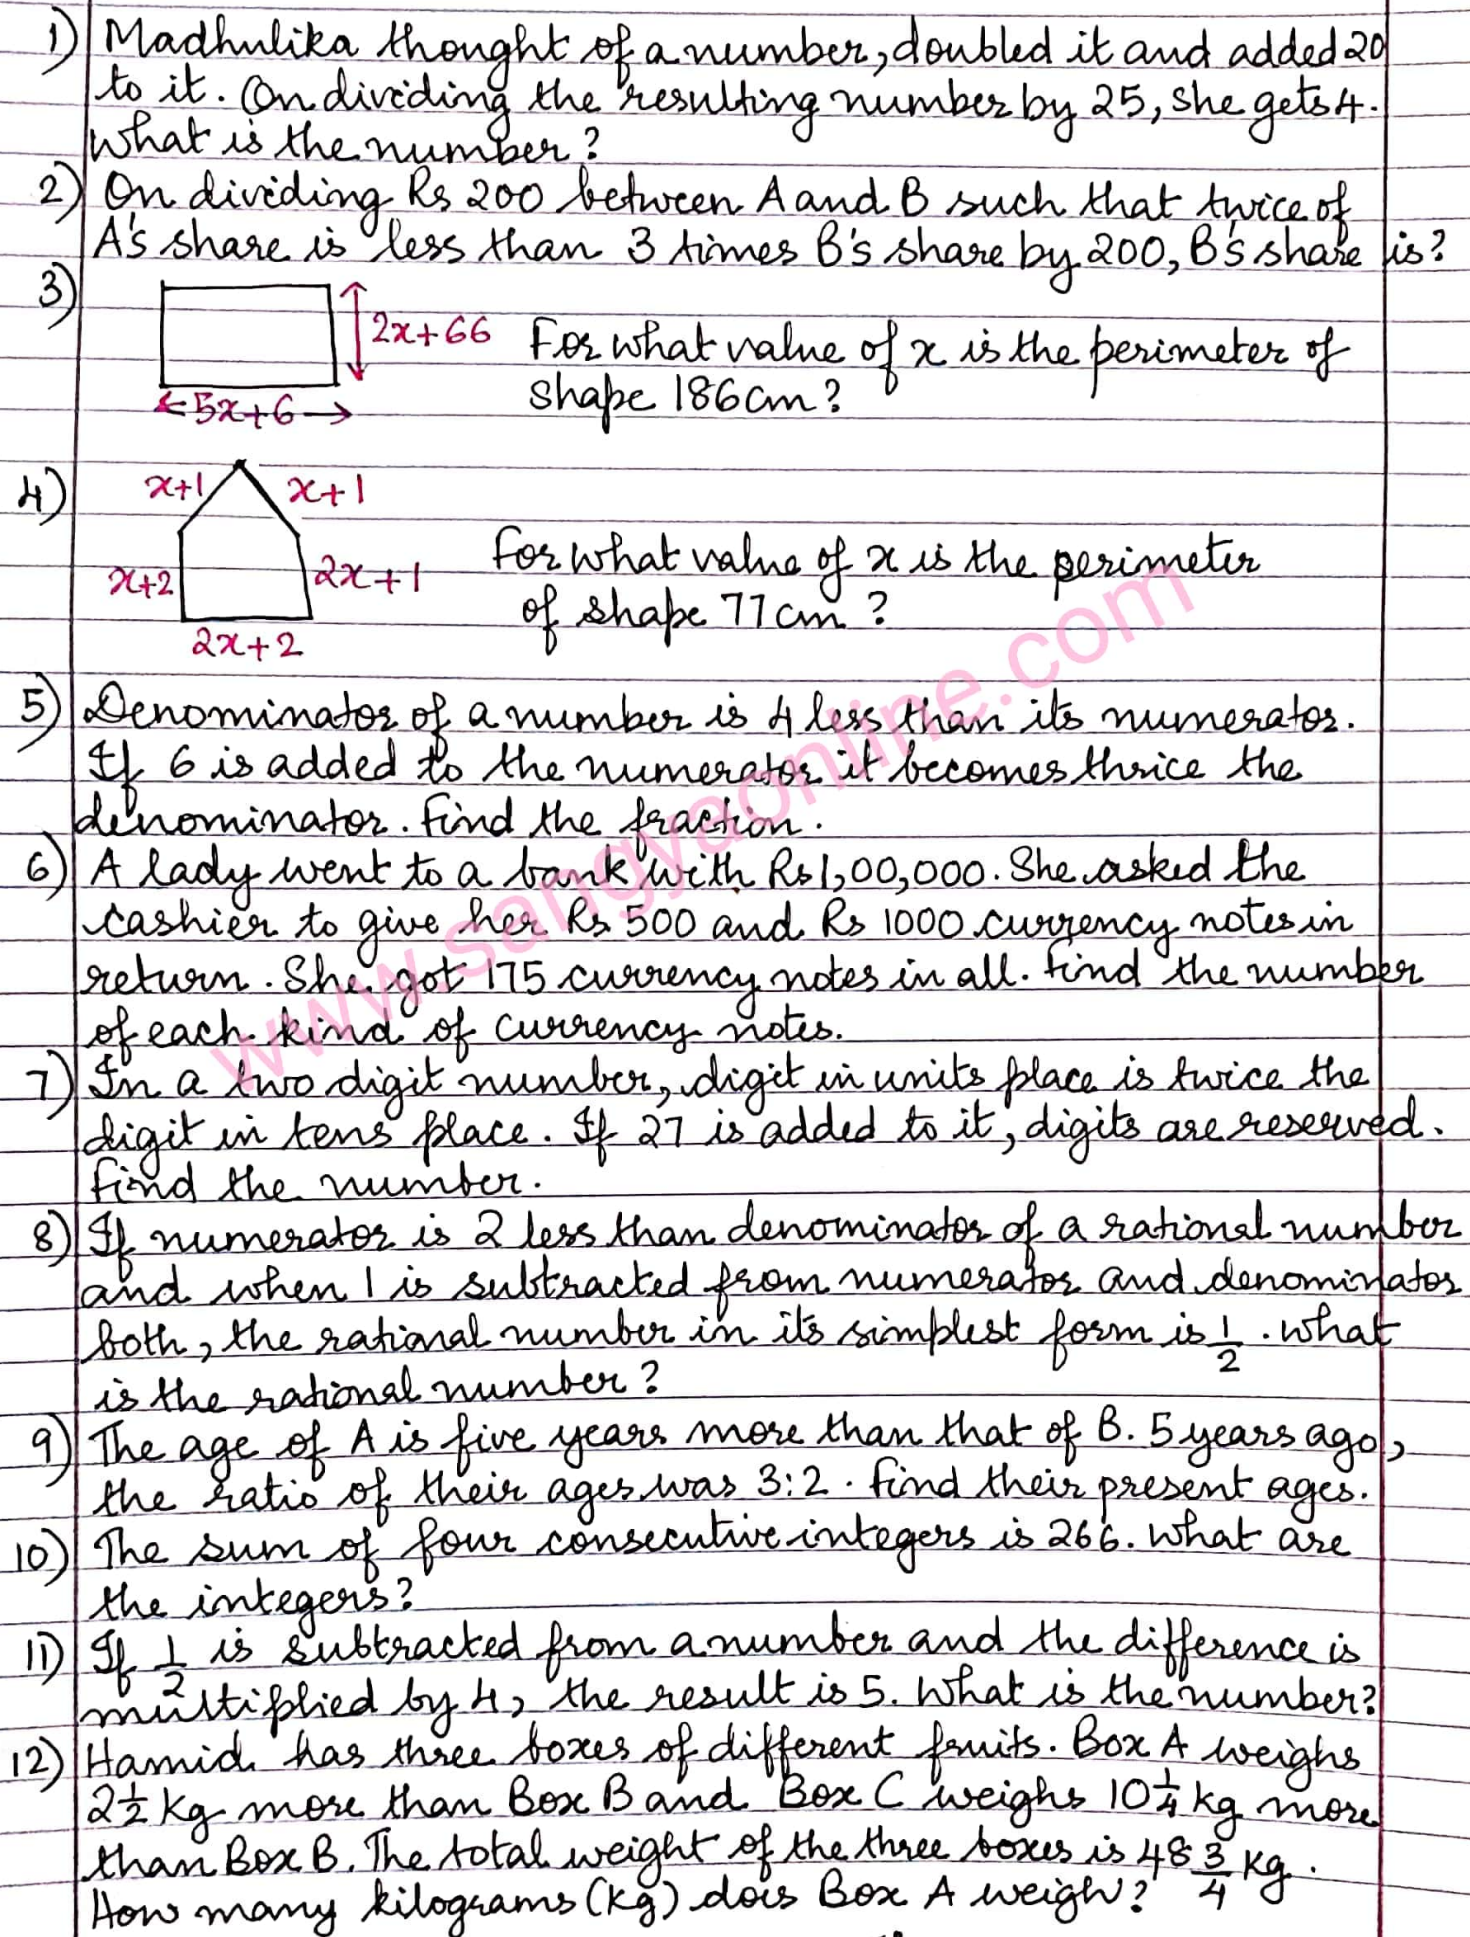 1) Madhulika thought of a number, doubled it and added 20
to it. On dividing the resulting number by 25, she gets 4.
What is the number?
2) On dividing Rs 200 between A and B such that twice of
A's share is less than 3 times B's share by 200, B's share is?
3)
2x+66
For what value of x is the perimeter of
shape 186cm?
5x+6
4)
x+1 x+1
x+2 2x+1
For what value of x is the perimeter
of shape 77cm?
2x+2
5) Denominator of a number is 4 less than its numerator.
If 6 is added to the numerator it becomes thrice the
denominator. Find the fraction.
6) A lady went to a bank with Rs 1,00,000. She asked the
cashier to give her Rs 500 and Rs 1000 currency notes in
return. She got 175 currency notes in all. Find the number
of each kind of currency notes.
7) In a two digit number, digit in units place is twice the
digit in tens place. If 27 is added to it, digits are reserved.
Find the number.
8) If numerator is 2 less than denominator of a rational number
and when 1 is subtracted from numerator and denominator
both, the rational number in its simplest form is 1/2. What
is the rational number?
9) The age of A is five years more than that of B. 5 years ago,
the ratio of their ages was 3:2. Find their present ages.
10) The sum of four consecutive integers is 266. What are
the integers?
11) If 1/2 is subtracted from a number and the difference is
multiplied by 4, the result is 5. What is the number?
12) Hamid has three boxes of different fruits. Box A weighs
2 1/2 kg more than Box B and Box C weighs 10 1/4 kg more
than Box B. The total weight of the three boxes is 48 3/4 kg.
How many kilograms (kg) does Box A weigh?
www.sangyaonline.com